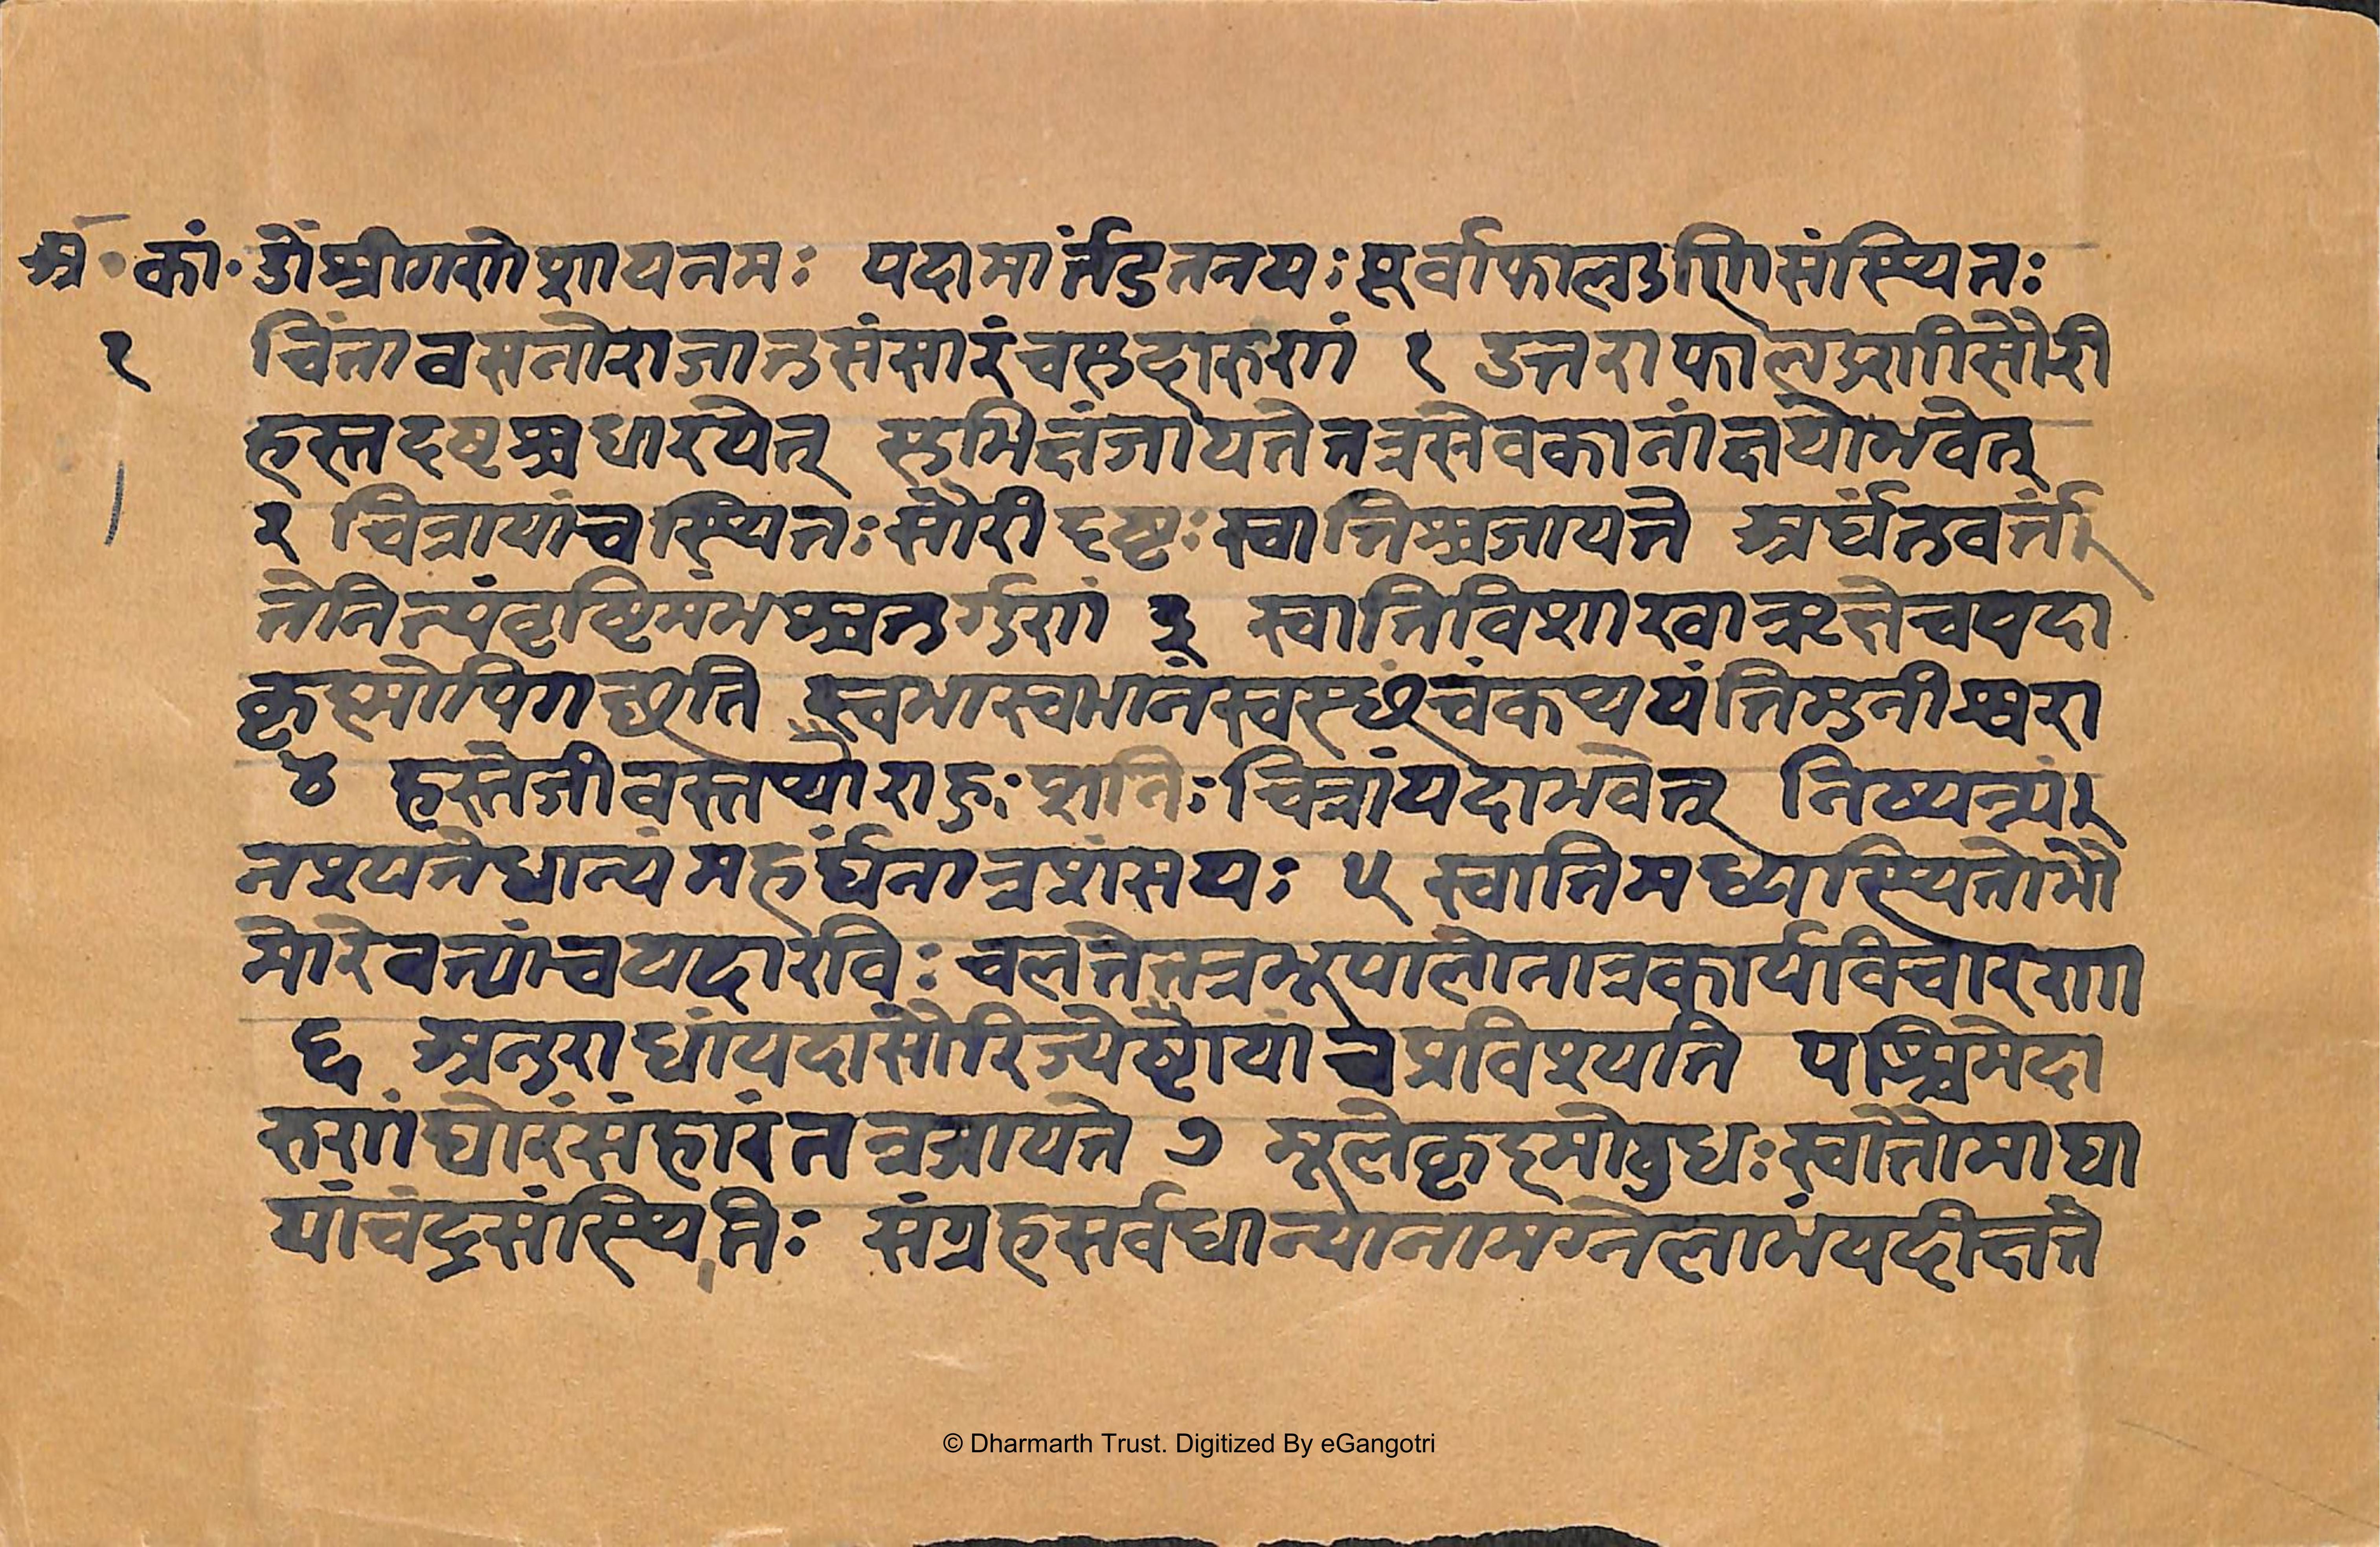 अ॰ कां॰ ओंश्रीगणेशायनमः यदामार्तंडतनयःपूर्वाफाल्गुणिसंस्थितः
१ चिंतावसतोराजानुसंसारंचसुदारुणं १ उत्तराफाल्गुणीसौरी
हस्तदृष्टश्चधारयेत् सुभिक्षंजायतेतत्रसेवकानांक्षयोभवेत्
२ चित्रायांचस्थितःसौरीदृष्टःस्वातिश्चजायते अर्घंतुवर्त्त
तेनित्यंवृष्टिमंभश्चतुर्गुणं ३ स्वातिविशाखाऋक्षेचयदा
कृष्मोपिगच्छति स्वभास्वभानंस्वस्छंचंकथ्ययंतिमुनीश्वरा
४ हस्तेजीवस्तथ्यौराहुःशनिःचित्रांयदाभवेत् निष्पत्त्यं
नश्यतेधान्यंमहर्घंनात्रशंसयः ५ स्वातिमध्यास्थितोभौ
मोरेवत्यांचयदारविः चलतेतत्रभूपालोनात्रकार्यविचारणा
६ अनुराधांयदासौरिज्येष्ठायांचप्रविश्यति पश्चिमेदा
रुणंघोरंसंहारंतत्रजायते ७ मूलेकृष्मोबुधःस्वातौमाघा
यांचंद्रसंस्थितिः संग्रहसर्वधान्यानामग्नेलाभंयदीक्षते
© Dharmarth Trust. Digitized By eGangotri